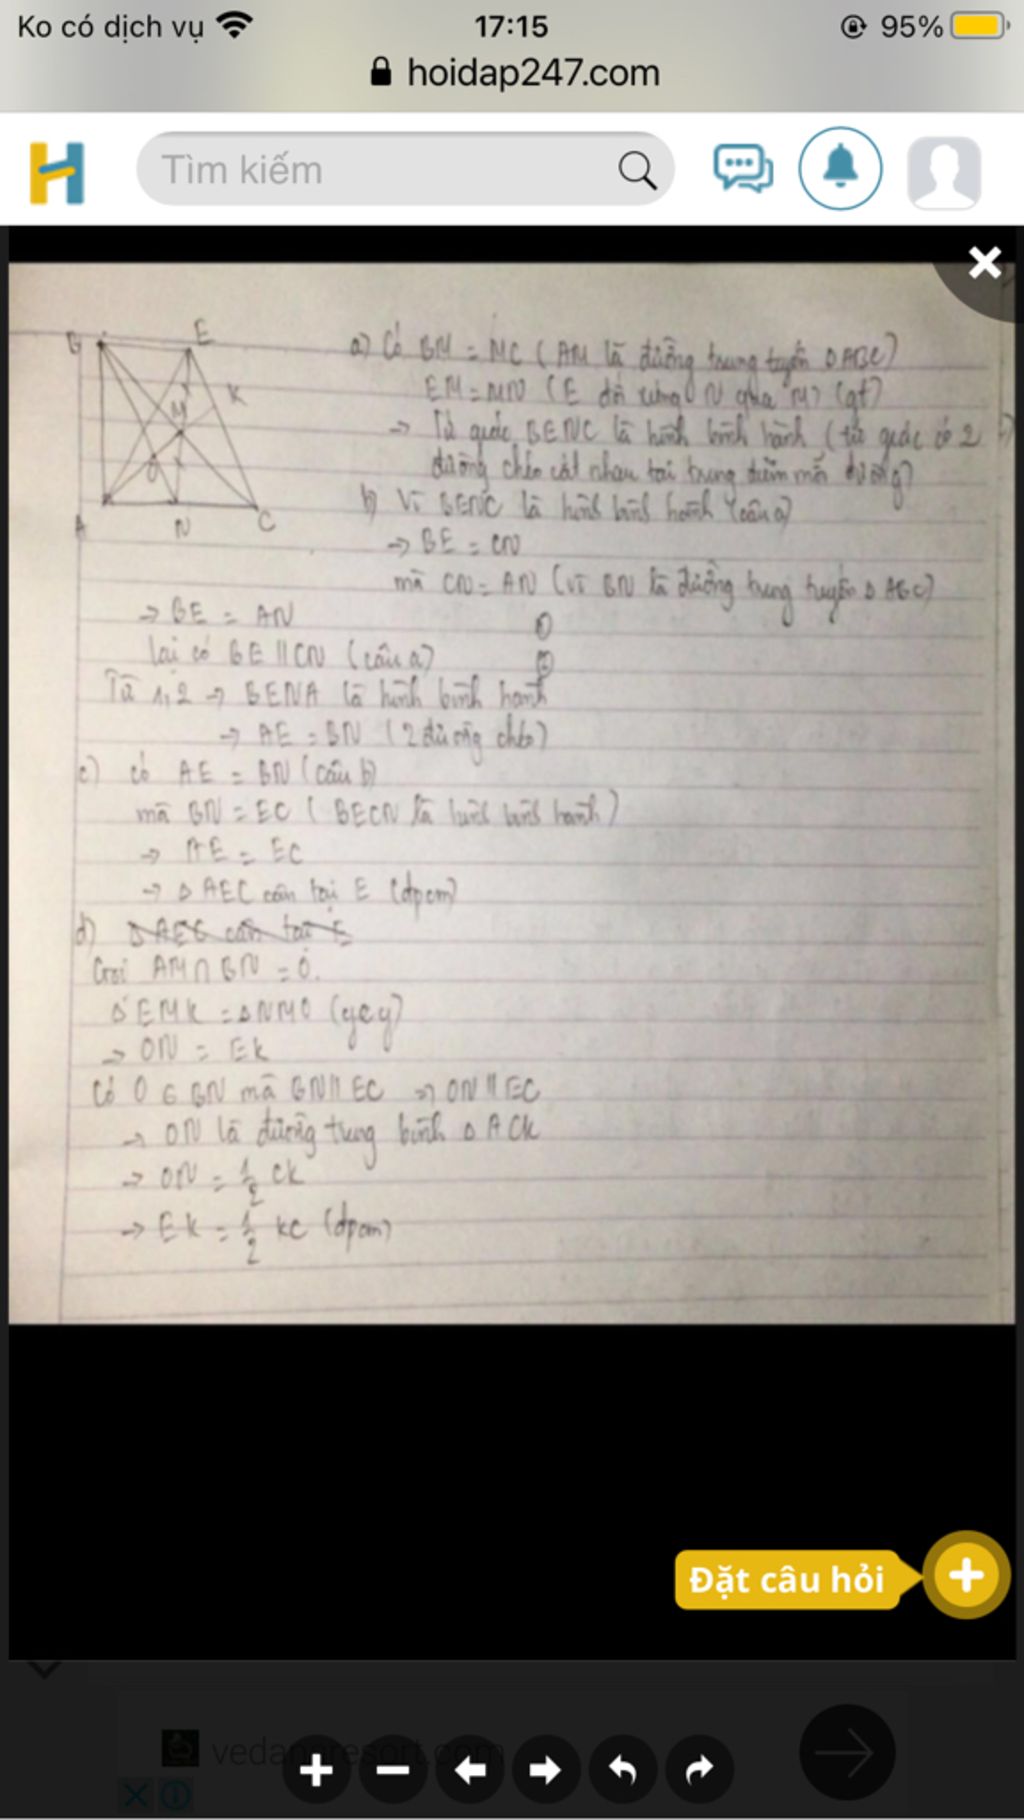 Ko có dịch vụ 17:15 95%
hoidap247.com
H Tìm kiếm
B E
M K
O
A N C
a) Có BM = MC ( AM là đường trung tuyến Δ ABC)
EM = MN ( E đối xứng N qua M) (gt)
-> Tứ giác BENC là hình bình hành ( tứ giác có 2
đường chéo cắt nhau tại trung điểm mỗi đường)
b) Vì BENC là hình bình hành (câu a)
-> BE = CN
mà CN = AN (vì BN là đường trung tuyến Δ ABC)
-> BE = AN ①
lại có BE // CN (câu a) ②
Từ 1,2 -> BENA là hình bình hành
-> AE = BN ( 2 đường chéo)
c) có AE = BN (câu b)
mà BN = EC ( BECN là hình bình hành)
-> AE = EC
-> Δ AEC cân tại E (đpcm)
d) Δ AEC cân tại E
Gọi AM ∩ BN = O.
Δ EMK = Δ NMO (gcg)
-> ON = EK
Có O ∈ BN mà BN // EC => ON // EC
-> ON là đường trung bình Δ ACK
-> ON = 1/2 CK
-> EK = 1/2 KC (đpcm)
Đặt câu hỏi